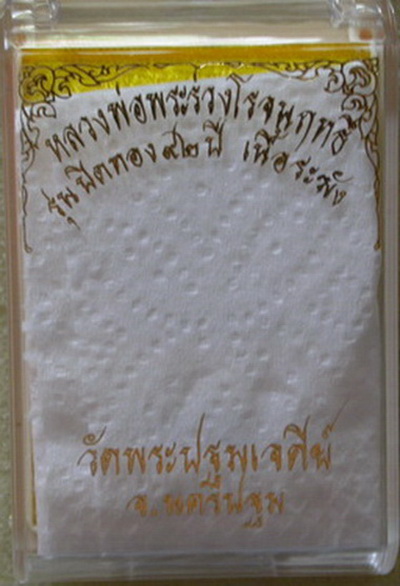 หลวงพ่อพระร่วงโรจนฤทธิ์
รุ่นปิดทอง ๙๒ ปี เนื้อระฆัง
วัดพระปฐมเจดีย์
จ.นครปฐม